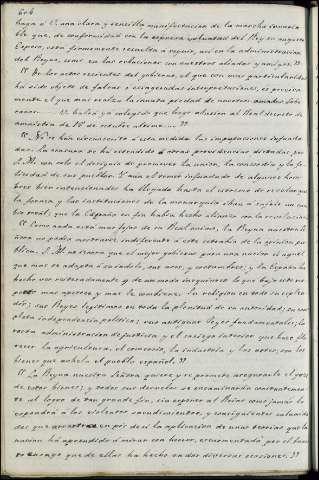 haga á V. una clara y sencilla manifestacion de la marcha invaria
ble que, de conformidad con la espresa voluntad del Rey su augusto
Esposo, está firmemente resuelta á seguir, así en la administracion
del Reyno, como en las relaciones con nuestros aliados y amigos."
"De los actos recientes del gobierno, el que con mas particularidad
ha sido objeto de falsas y exageradas interpretaciones, es precisa
mente el que mas realza la innata piedad de nuestros amados Sobe
ranos. V. habrá ya colegido que hago alusion al Real decreto de
amnistía de 15 de octubre último...."
"No se han circunscrito á esta medida las imputaciones infunda
das: la censura se ha estendido á otras providencias dictadas por
S. M. con solo el designio de promover la union, la concordia y la fe
licidad de sus pueblos. Y aun el error infundado de algunos hom
bres bien intencionados ha llegado hasta el estremo de recelar que
la forma y las instituciones de la monarquía iban á sufrir un cam
bio total; que la España en fin habia hecho alianza con la revolucion."
"Como nada está mas lejos de su Real ánimo, la Reyna nuestra Se
ñora no podia mostrarse indiferente á este estravío de la opinion pú
blica. S. M. no ignora que el mejor gobierno para una nacion es aquel
que mas se adapta á su índole, sus usos, y costumbres; y la España ha
hecho ver reiteradamente y de un modo inequívoco lo que bajo este res
pecto mas aprecia y mas le conviene. Su religion en todo su esplen
dor; sus Reyes legítimos en toda la plenitud de su autoridad; su com
pleta independencia política; sus antiguas leyes fundamentales; la
recta administracion de justicia y el sosiego interior que hace flo
recer la agricultura, el comercio, la industria y las artes, son los
bienes que anhela el pueblo español."
"La Reyna nuestra Señora quiere y se promete asegurarle el goce
de estos bienes; y todos sus desvelos se encaminarán constantemen
te al logro de tan grande fin, sin esponer al Reino que jamas lo
espondrá á los violentos sacudimientos, y consiguientes calamida
des que arrastra en pos de sí la aplicacion de unas teorías que la
nacion ha aprendido á mirar con horror, escarmentada por el funes
to ensayo que de ellas ha hecho en dos diversas ocasiones."